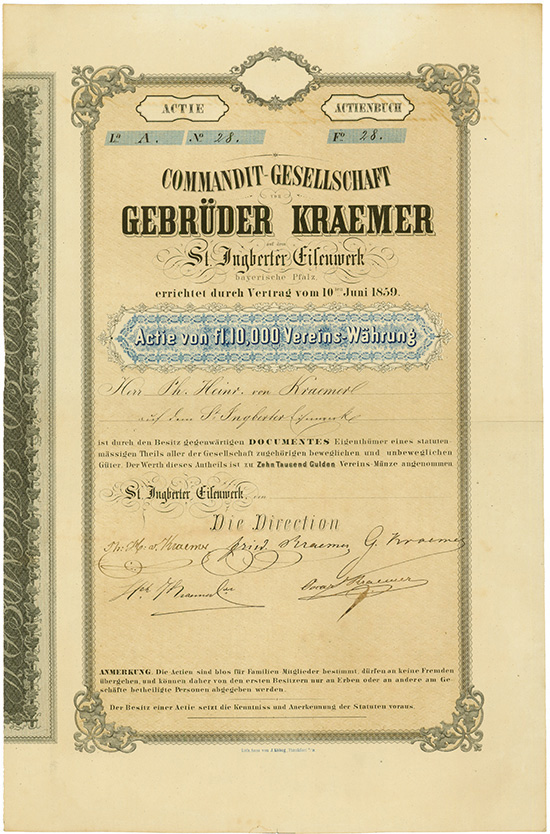 ACTIE ACTIENBUCH
La A. No 28. Fo 28.
COMMANDIT-GESELLSCHAFT
VON
GEBRÜDER KRAEMER
auf dem
St. Ingberter Eisenwerk
bayerische Pfalz,
errichtet durch Vertrag vom 10ten Juni 1859.
Actie von fl. 10,000 Vereins-Währung
Herr Ph. Heinr. von Kraemer
auf dem St. Ingberter Eisenwerk
ist durch den Besitz gegenwärtigen DOCUMENTES Eigenthümer eines statuten-
mässigen Theils aller der Gesellschaft zugehörigen beweglichen und unbeweglichen
Güter. Der Werth dieses Antheils ist zu Zehn Tausend Gulden Vereins-Münze angenommen
St. Ingberter Eisenwerk, den
Die Direction
Ph. H. v. Kraemer Fried. Kraemer G. Kraemer
Kraemer Oscar Kraemer
ANMERKUNG. Die Actien sind blos für Familien Mitglieder bestimmt, dürfen an keine Fremden
übergehen, und können daher von den ersten Besitzern nur an Erben oder an andere am Ge-
schäfte betheiligte Personen abgegeben werden.
Der Besitz einer Actie setzt die Kenntniss und Anerkennung der Statuten voraus.